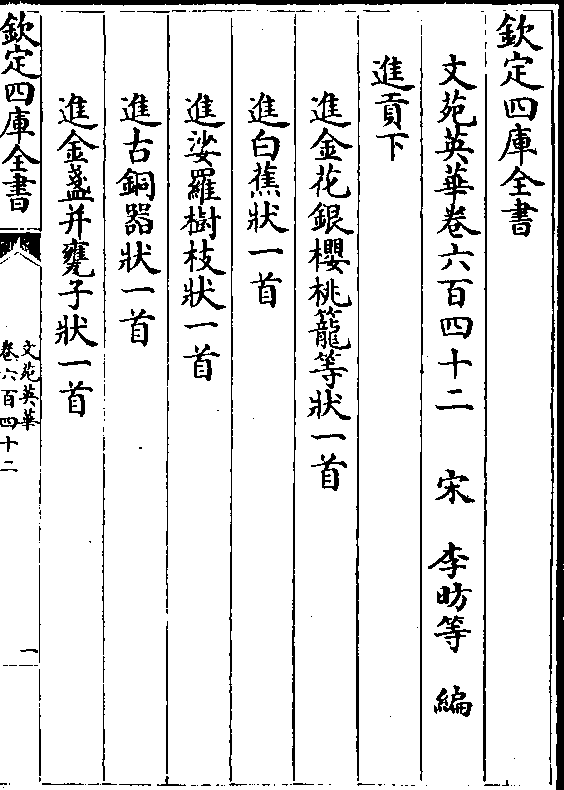 欽定四庫全書
文苑英華卷六百四十二 宋 李昉等 編
進貢下
進金花銀櫻桃籠等狀一首
進白蕉狀一首
進娑羅樹枝狀一首
進古銅器狀一首
進金盞并甕子狀一首
欽定四庫全書
文苑英華
卷六百四十二
一